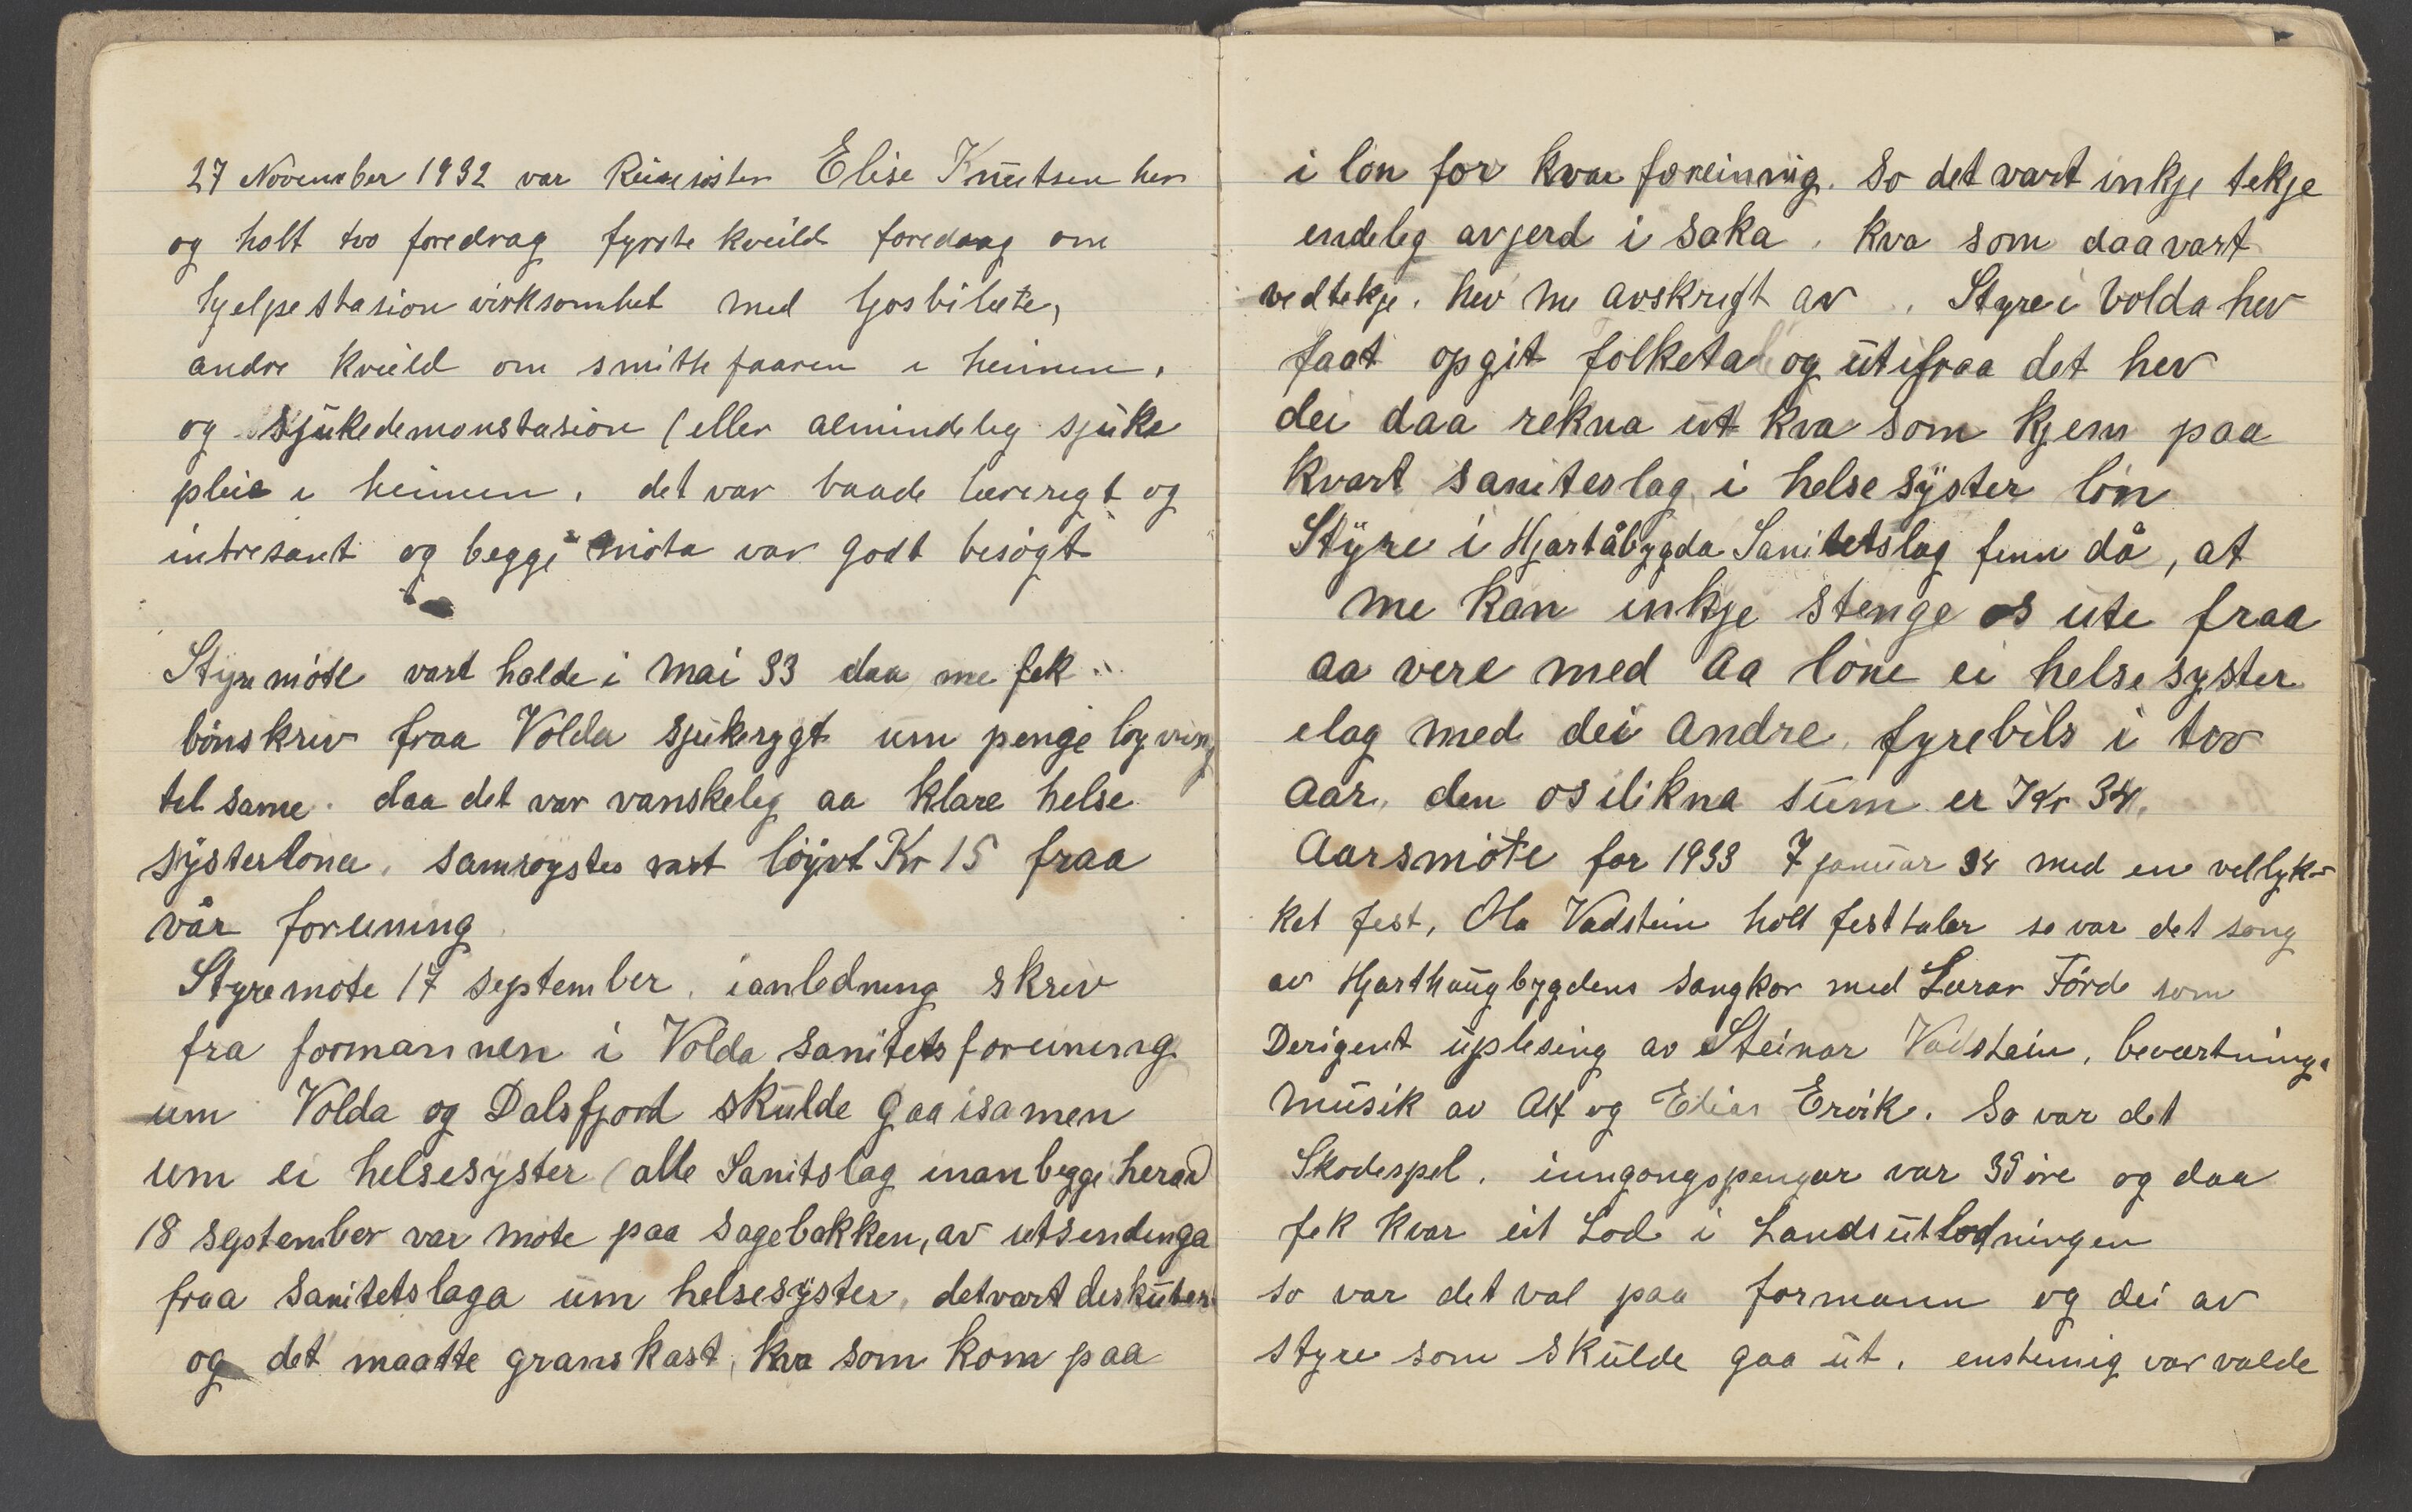 27 November 1932 var Reisesøster Elise Knutsen her
og holt two foredrag fyrste kveild foredrag om
hjelpestasion virksomhet med ljosbilæte,
andre kveild om smitte faaren i heimen,
og sjukedemonstasion (eller almindeleg sjuke
pleie i heimen. det var baade lærerigt og
intresant og begge møta var godt besøgt
Styremøte vart halde i mai 33 daa me fek
bønskriv fraa Volda sjukerygt um penge løyving
tel same. daa det var vanskeleg aa klare helse
systerløna. samrøystes vart løyvt Kr 15 fraa
vår foreining
Styremøte 17 september. ianledning skriv
fra formannen i Volda sanitetsforeining
um Volda og Dalsfjord skulde gaa isamen
um ei helsesyster (alle Sanitslag inan begge herad
18 september var møte paa Sagebakken, av utsendinga
fraa sanitetslaga um helsesyster. det vart deskutert
og det maatte granskast, kva som kom paa
i løn for kvar foreining. So det vart inkje tekje
endeleg avjerd i saka. kva som daa vart
vedtekje. hev me avskrigt av. Styre i Volda hev
faat opgit folketal og utifraa det hev
dei daa rekna ut kva som kjem paa
kvart saniteslag i helsesyster løn
Styre i Hjartåbygda Sanitetslag finn då, at
me kan inkje stenge os ute fraa
aa vere med aa løne ei helsesyster
elag med dei andre, fyrebils i tvo
aar, den osilikna sum er Kr 34.
Aarsmøte for 1933 7 januar 34 med en vellyk-
ket fest, Ola Vadstein holt festtaler so var det song
av Hjarthaugbygdens sangkor med Lærar Førde som
Derigent uplesing av Steinar Vadstein, beværtning.
musik av Alf og Elias Ervik. So var det
Skodespel. inngongspengar var 35 øre og daa
fek kvar eit Lod i Landsutlodningen
so var det val paa formann og dei av
styre som skulde gaa ut. enstemig var valde